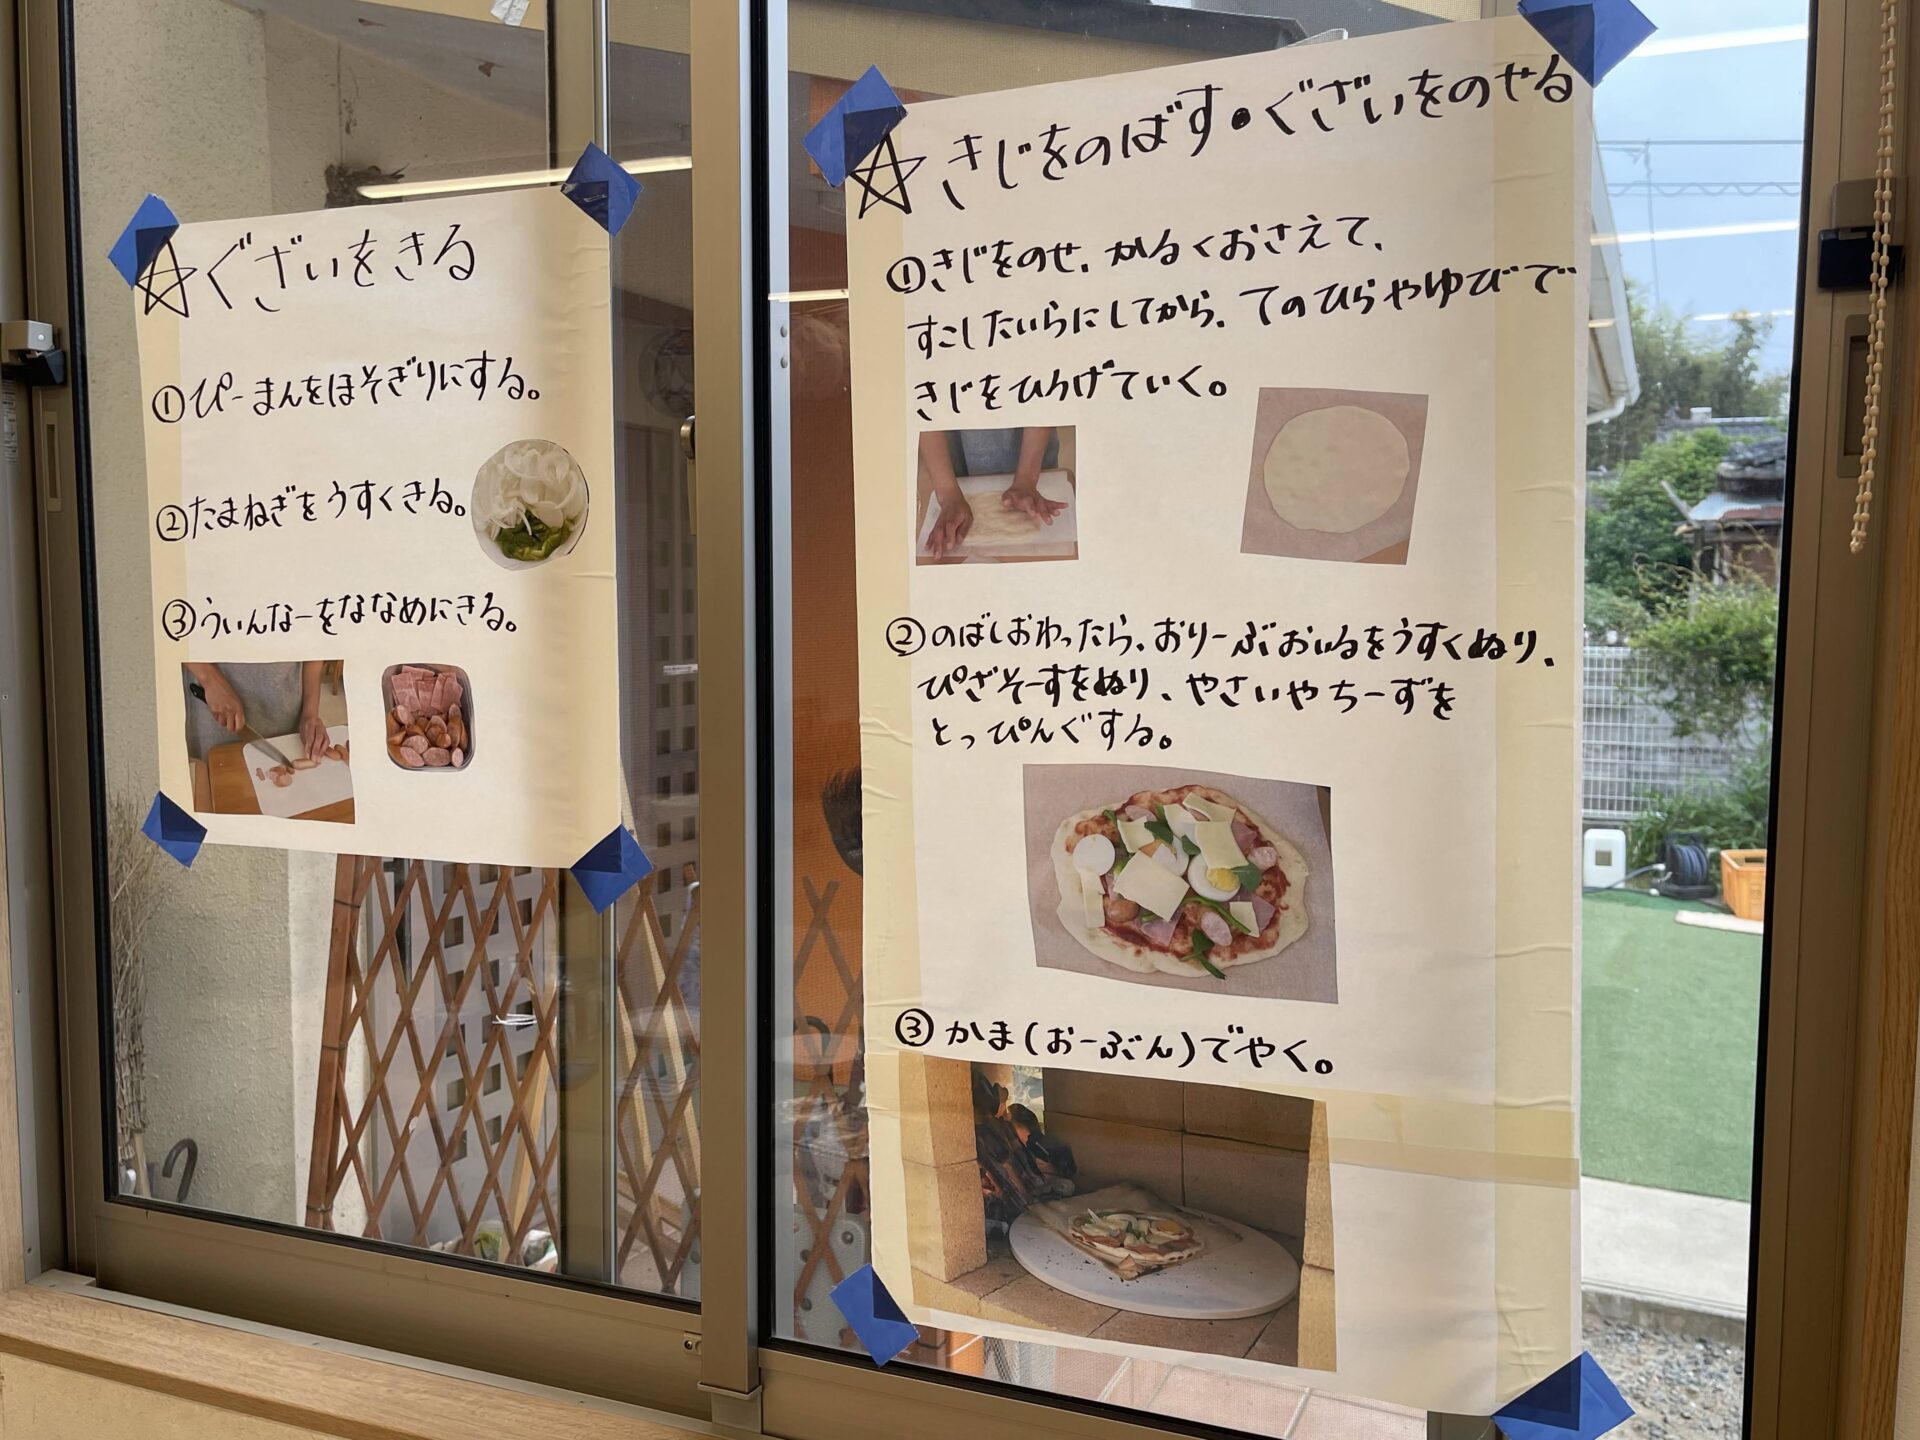 ☆ぐざいをきる
①ぴーまんをほそぎりにする。
②たまねぎをうすくきる。
③ういんなーをななめにきる。
☆きじをのばす・ぐざいをのせる
①きじをのせ、かるくおさえて、
すこしたいらにしてから、てのひらやゆびで
きじをひろげていく。
②のばしおわったら、おりーぶおいるをうすくぬり、
ぴざそーすをぬり、やさいやちーずを
とっぴんぐする。
③かま(おーぶん)でやく。